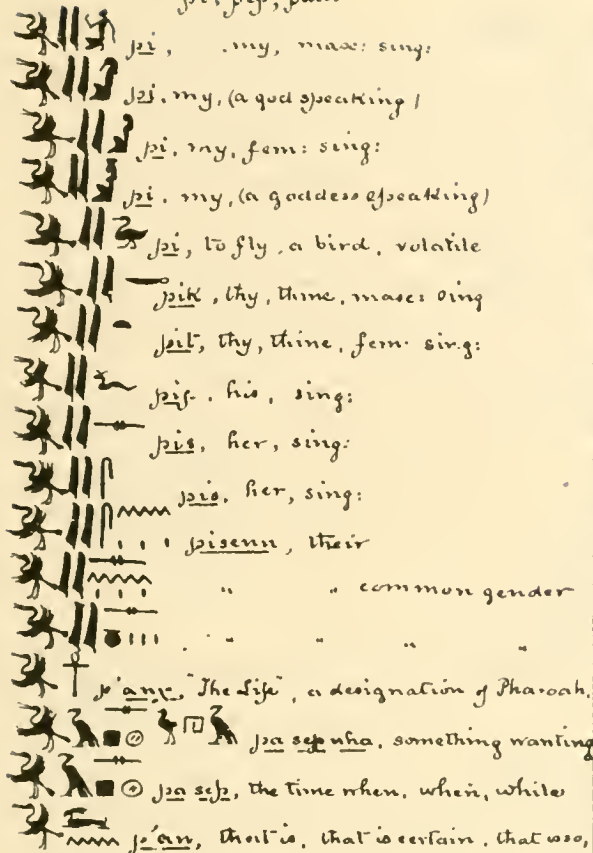 pi, my, masc: sing:
pi. my, (a god speaking)
pi, my, fem: sing:
pi. my, (a goddess speaking)
pi, to fly, a bird, volatile
pik, thy, thine, masc: sing
pit, thy, thine, fem. sing:
pif. his, sing:
pis, her, sing:
pis, her, sing:
pisenn, their
" " common gender
" " " "
p'anχ, "The Life", a designation of Pharoah,
pa sep uha, something wanting
pa sep, the time when, when, while
p'an, that is, that is certain, that is so,